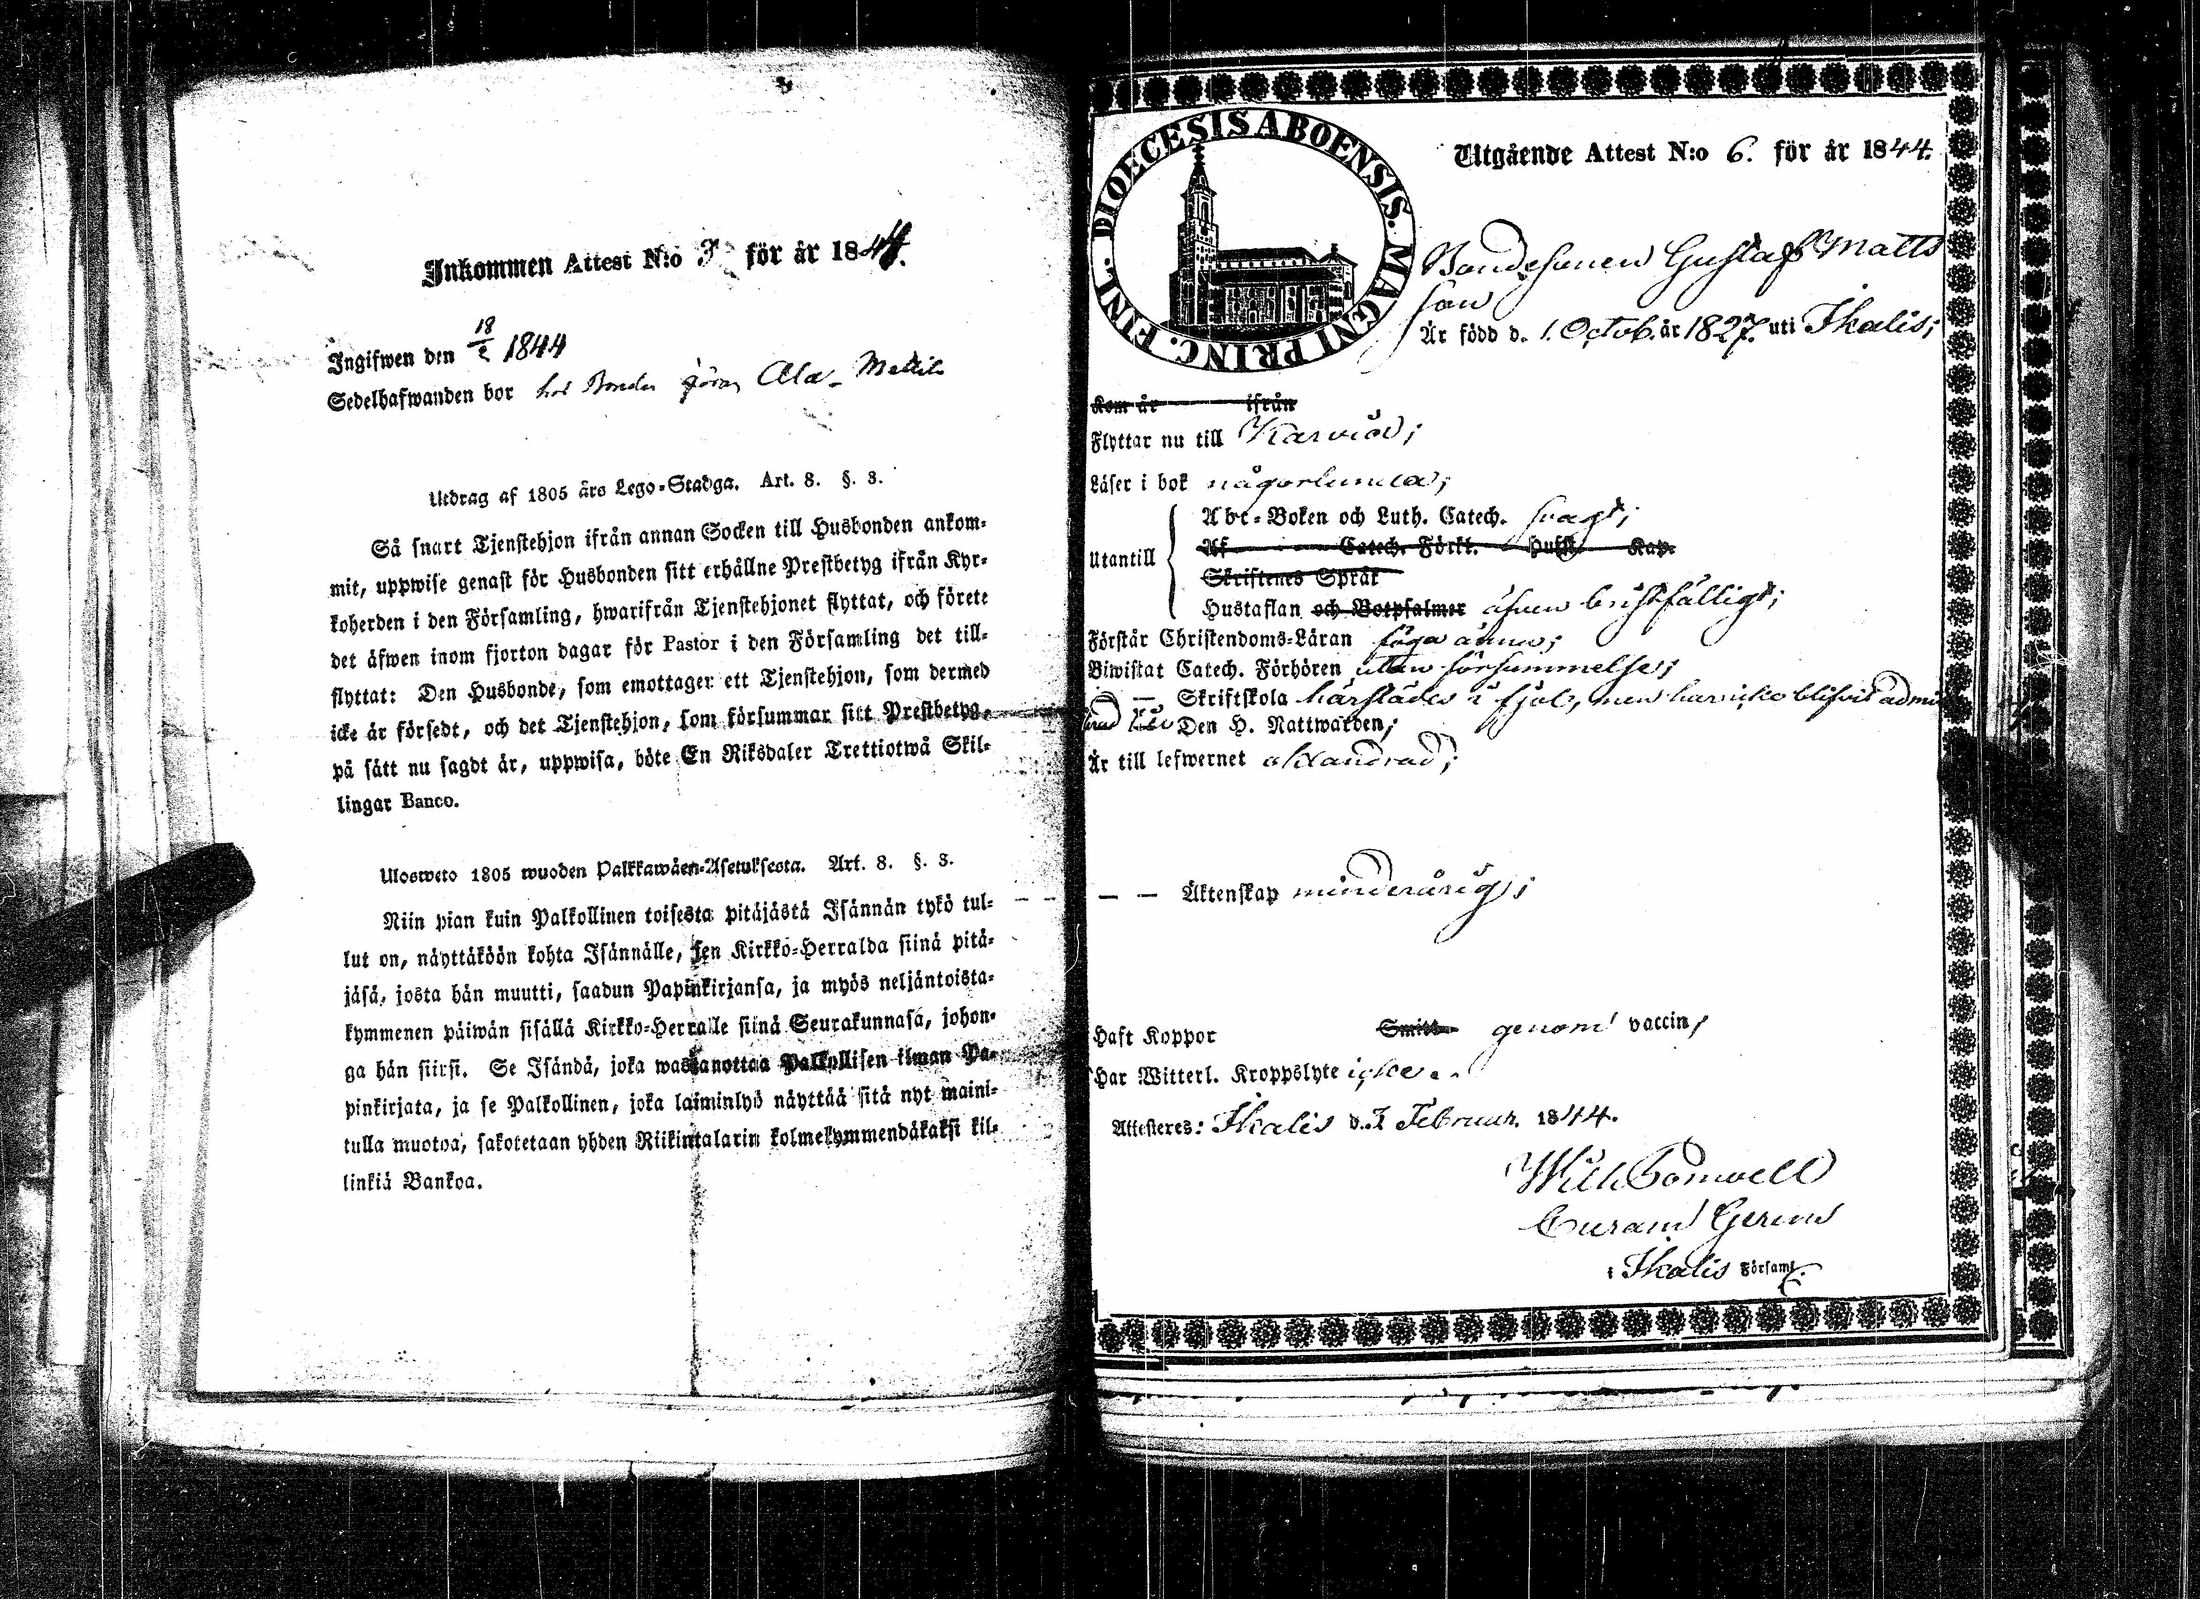 Inkommen Attest N:o 3 för år 1844.
Ingifwen den 18/2 1844
Sedelhafwanden bor hos Bonden Göran Ala-Mattila
Utdrag af 1805 års Lego-Stadga. Art. 8. §. 3.
Så snart Tjenstehjon ifrån annan Socken till Husbonden ankom-
mit, uppwise genast för Husbonden sitt erhållne Prestbetyg ifrån Kyr-
koherden i den Församling, hwarifrån Tjenstehjonet flyttat, och förete
det äfwen inom fjorton dagar för Pastor i den Församling det till-
flyttat: Den Husbonde, som emottager ett Tjenstehjon, som dermed
icke är försedt, och det Tjenstehjon, som försummar sitt Prestbetyg,
på sätt nu sagdt är, uppwisa, böte En Riksdaler Trettiotwå Skil-
lingar Banco.
Ulosweto 1805 wuoden Palkkawäen-Asetuksesta. Art. 8. §. 3.
Niin pian kuin Palkollinen toisesta pitäjästä Isännän tykö tul-
lut on, näyttäköön kohta Isännälle, sen Kirkko-Herralda siinä pitä-
jäsä, josta hän muutti, saadun Papinkirjansa, ja myös neljäntoista-
kymmenen päiwän sisällä Kirkko-Herralle siinä Seurakunnasa, johon-
ga hän siirsi. Se Isändä, joka wastanottaa Palkollisen ilman Pa-
pinkirjata, ja se Palkollinen, joka laiminlyö näyttää sitä nyt maini-
tulla muotoa, sakotetaan yhden Riikintalarin kolmekymmendäkaksi kil-
linkiä Bankoa.
DIOECESIS ABOENSIS. MAGNI PRINC. FINL.
Utgående Attest N:o 6. för år 1844.
Bondesonen Gustaf Matts
son
Är född d. 1. Octob. år 1827. uti Ikalis;
Kom år ifrån
Flyttar nu till Karviå;
Läser i bok någorlunda;
Utantill
Abc-Boken och Luth. Catech. svagt;
Af Catech. Förkl. Kap.
Skriftenes Språk
Hustaflan och Botpsalmer äfven bristfälligt;
Förstår Christendoms-Läran föga ännu;
Biwistat Catech. Förhören utan försummelse;
— Skriftskola härstädes i fjol, men har icke blifvit admit
terad till Den H. Nattwarden;
Är till lefwernet oklandrad;
— — Äktenskap minderårig;
Haft Koppor Smitt- genom vaccin;
Har Witterl. Kroppslyte icke..
Attesteres: Ikalis d. 3 Februar. 1844.
Wilh.
Curam Gerens
i Ikalis Församl.